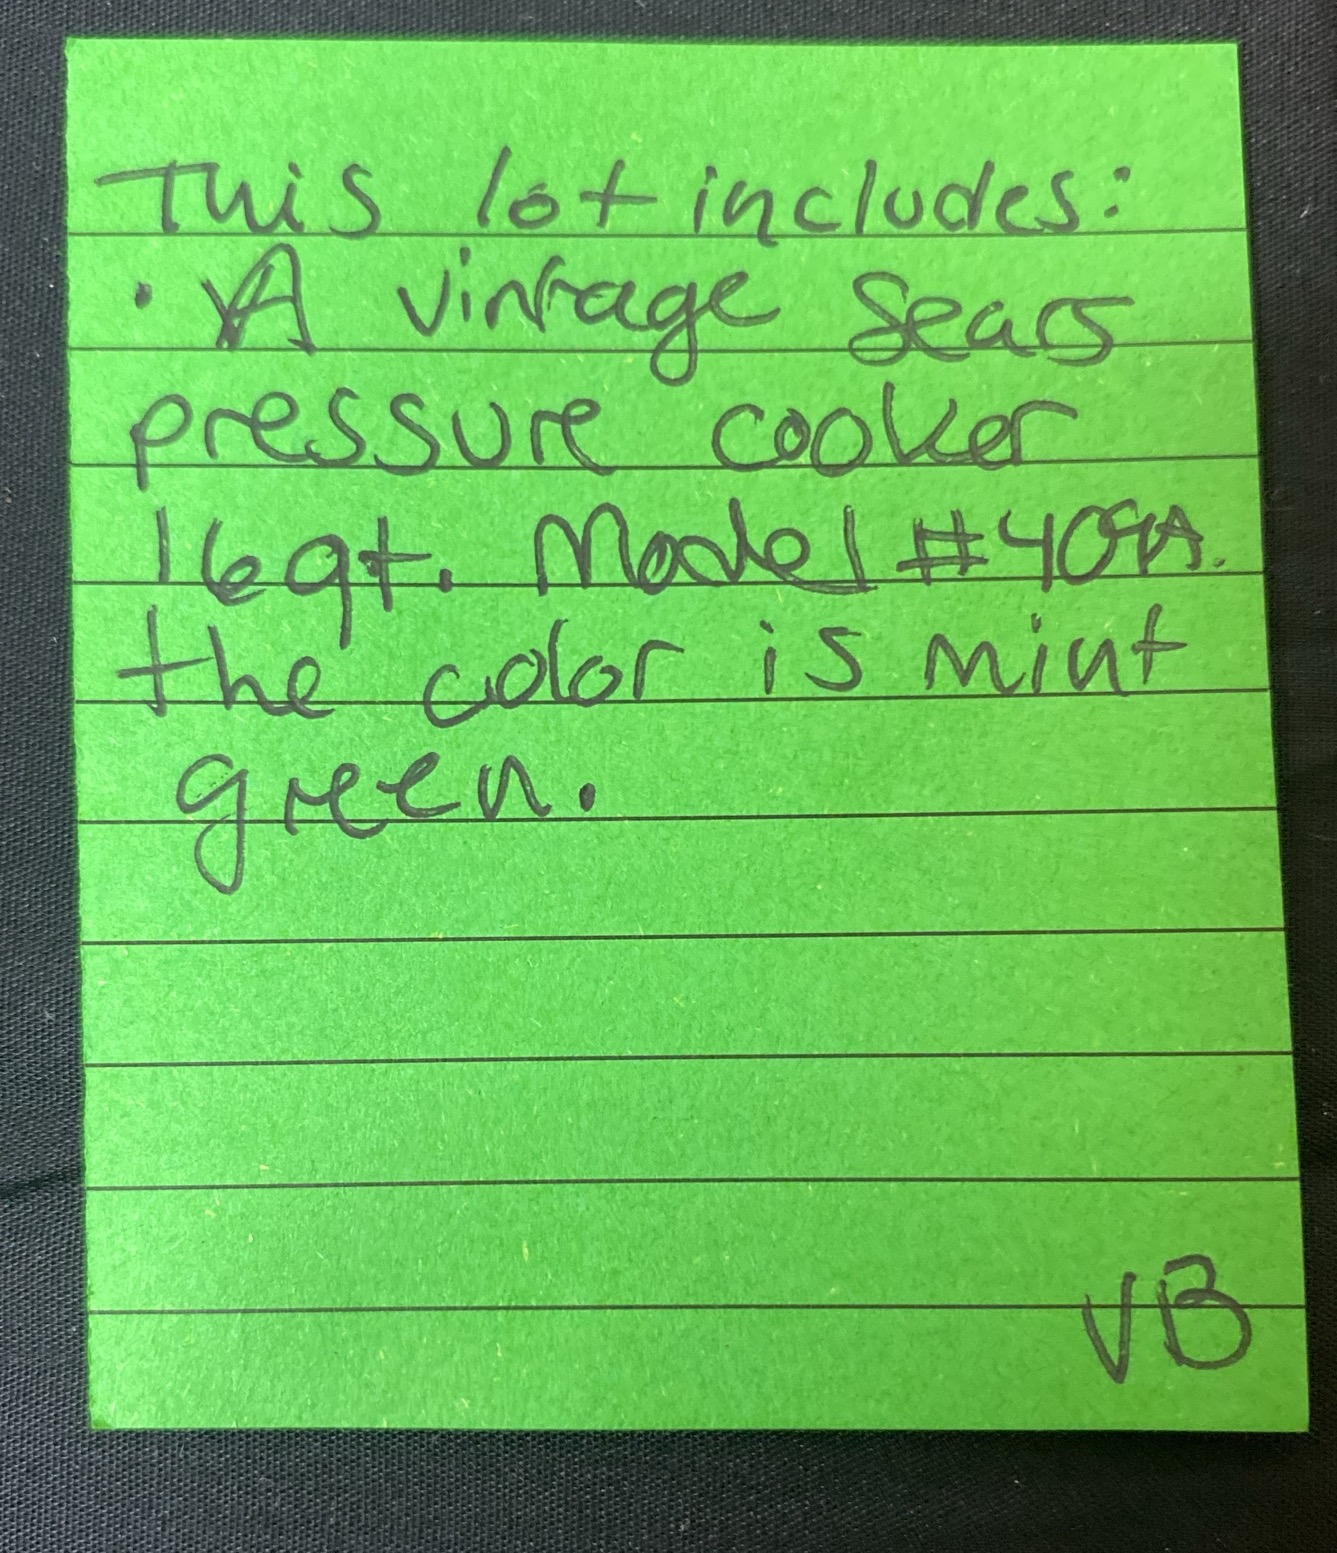 This lot includes:
· A vintage Sears
pressure cooker
16qt. Model #409A.
the color is mint
green.
VB